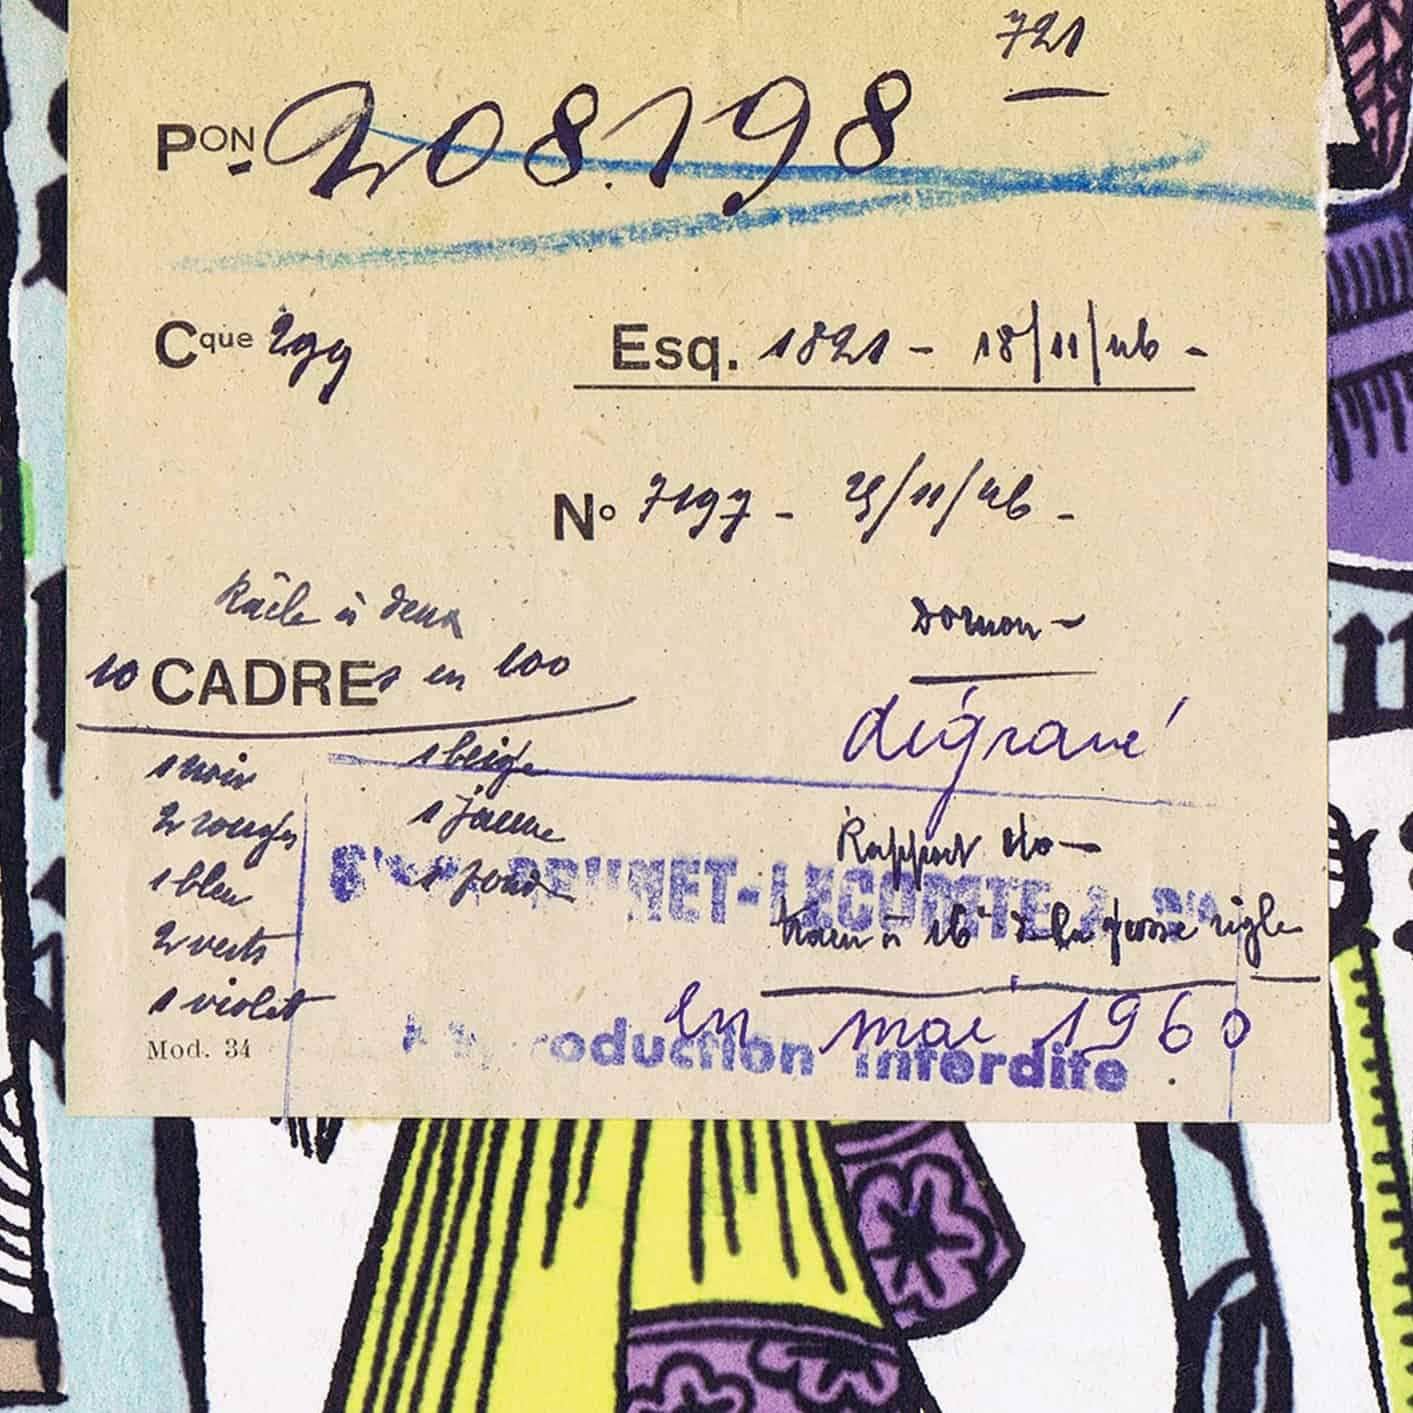 721
PON 208.198
Cque 299
Esq. 1821 - 18/11/46 -
No 7197 - 25/11/46 -
Racle à deux
10 CADREs en 100
Dornon -
dégravé
1 noir
1 beige
2 rouges
1 jaune
Rapport
1 bleu
1 fond
BRUNET-LECOMTE &
à 16 de la grosse règle
2 verts
1 violet
en mai 1960
Reproduction interdite
Mod. 34